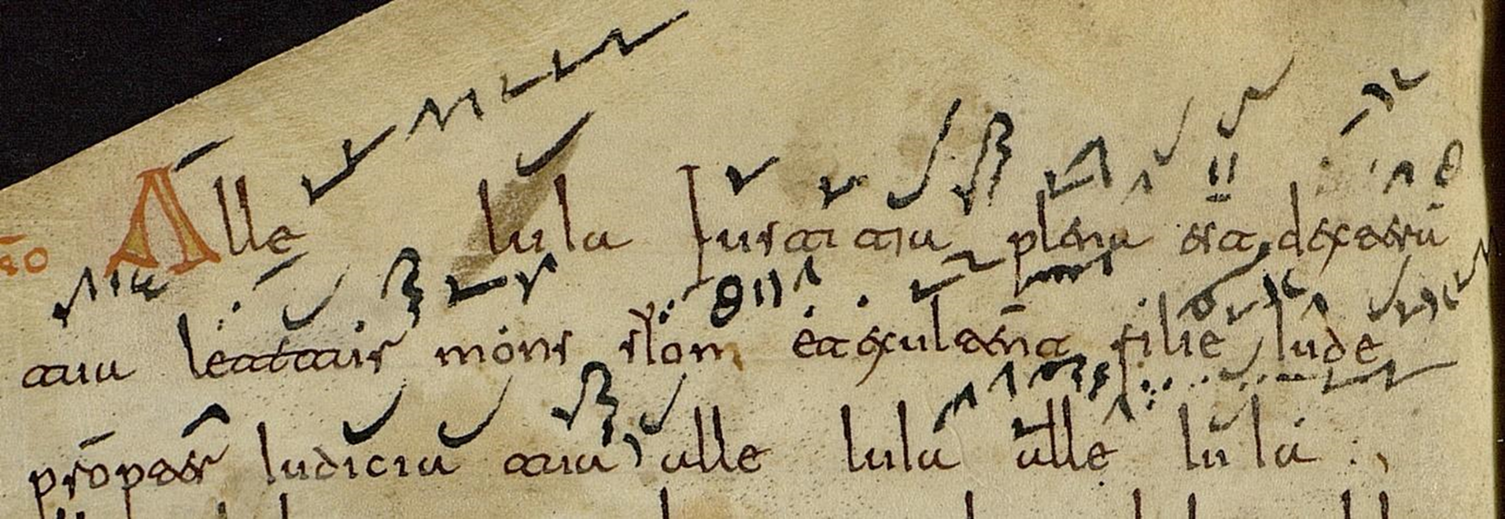 Alle luia Iustitia plena est dextera
tua letetur mons sion et exultent filie Iude
propter Iudicia tua alle luia alle luia